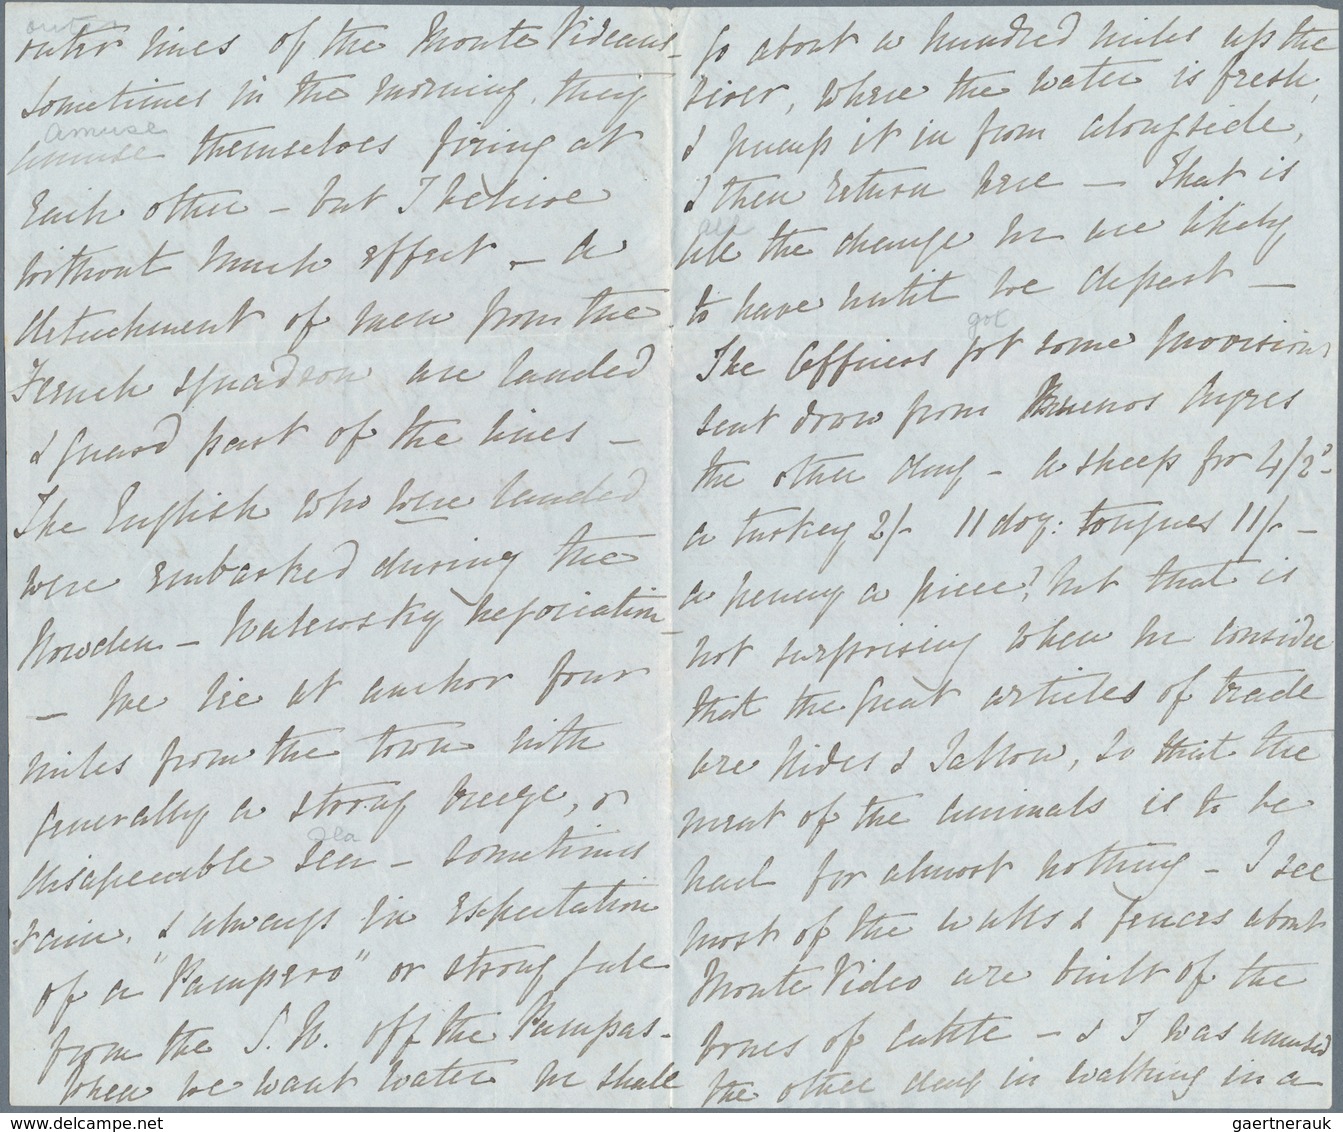 outer
outer lines of the Monte Videans -
sometimes in the morning, they
amuse
amuse themselves firing at
each other – but I believe
without much effect – a
detachment of men from the
French squadron are landed
& guard part of the lines –
The English who were landed
were embarked during the
Howden – Walewsky negociation –
– We lie at anchor four
miles from the town with
generally a strong breeze, or
sea
disagreeable sea – sometimes
rain, & always in expectation
of a "Pampero" or strong gale
from the S.W. off the Pampas –
When we want water we shall
go about a hundred miles up the
river, where the water is fresh,
& pump it in from alongside,
& then return here – That is
all
all the change we are likely
to have until we depart –
got
The Officers got some provisions
sent down from Buenos Ayres
the other day – a sheep for 4/2d
a turkey 2/- 11 doz: tongues 11/- –
a penny a piece! but that is
not surprising when we consider
that the great articles of trade
are hides & Tallow, so that the
meat of the animals is to be
had for almost nothing – I see
most of the walls & fences about
Monte Video are built of the
bones of cattle – & I was amused
the other day in walking in a
www.delcampe.net
gaertnerauk